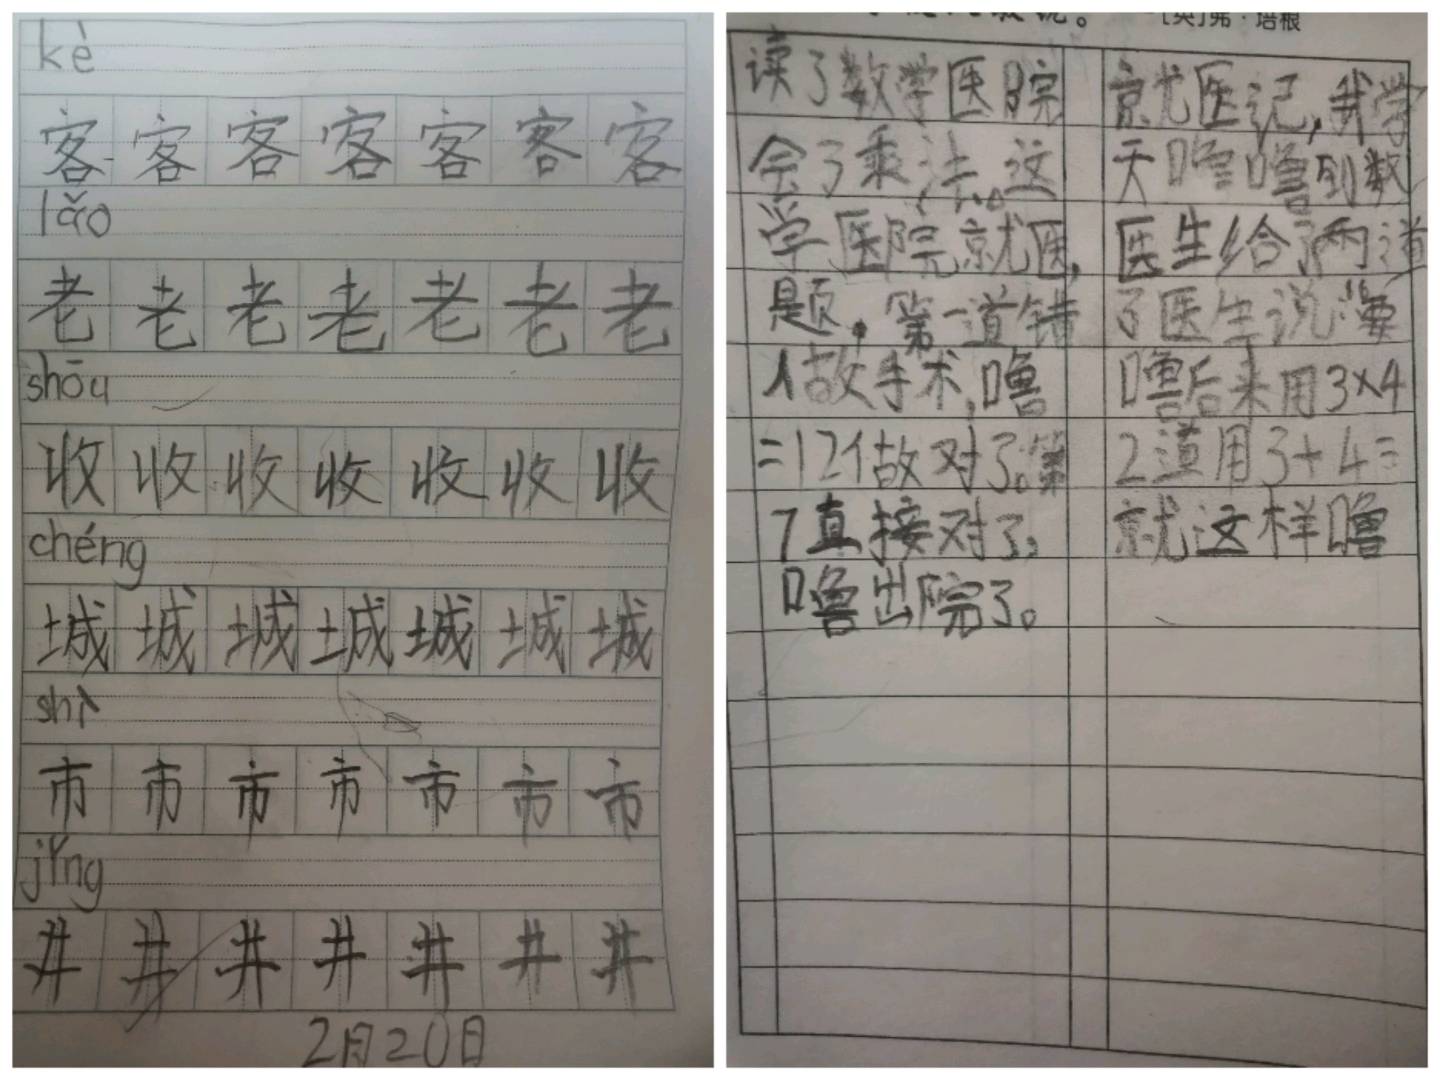 kè
客客客客客客客
lǎo
老老老老老老老
shōu
收收收收收收收
chéng
城城城城城城城
shì
市市市市市市市
jǐng
井井井井井井井
2月20日
[英]弗·培根
读了数学医院就尤医记,我学
会了乘法。这天噜噜到数
学医院就医,医生给了两道
题。第一道错了医生说:“要
做手术,噜噜后来用3×4
=12做对了。第2道用3+4=
7直接对了,就这样噜
噜出院了。